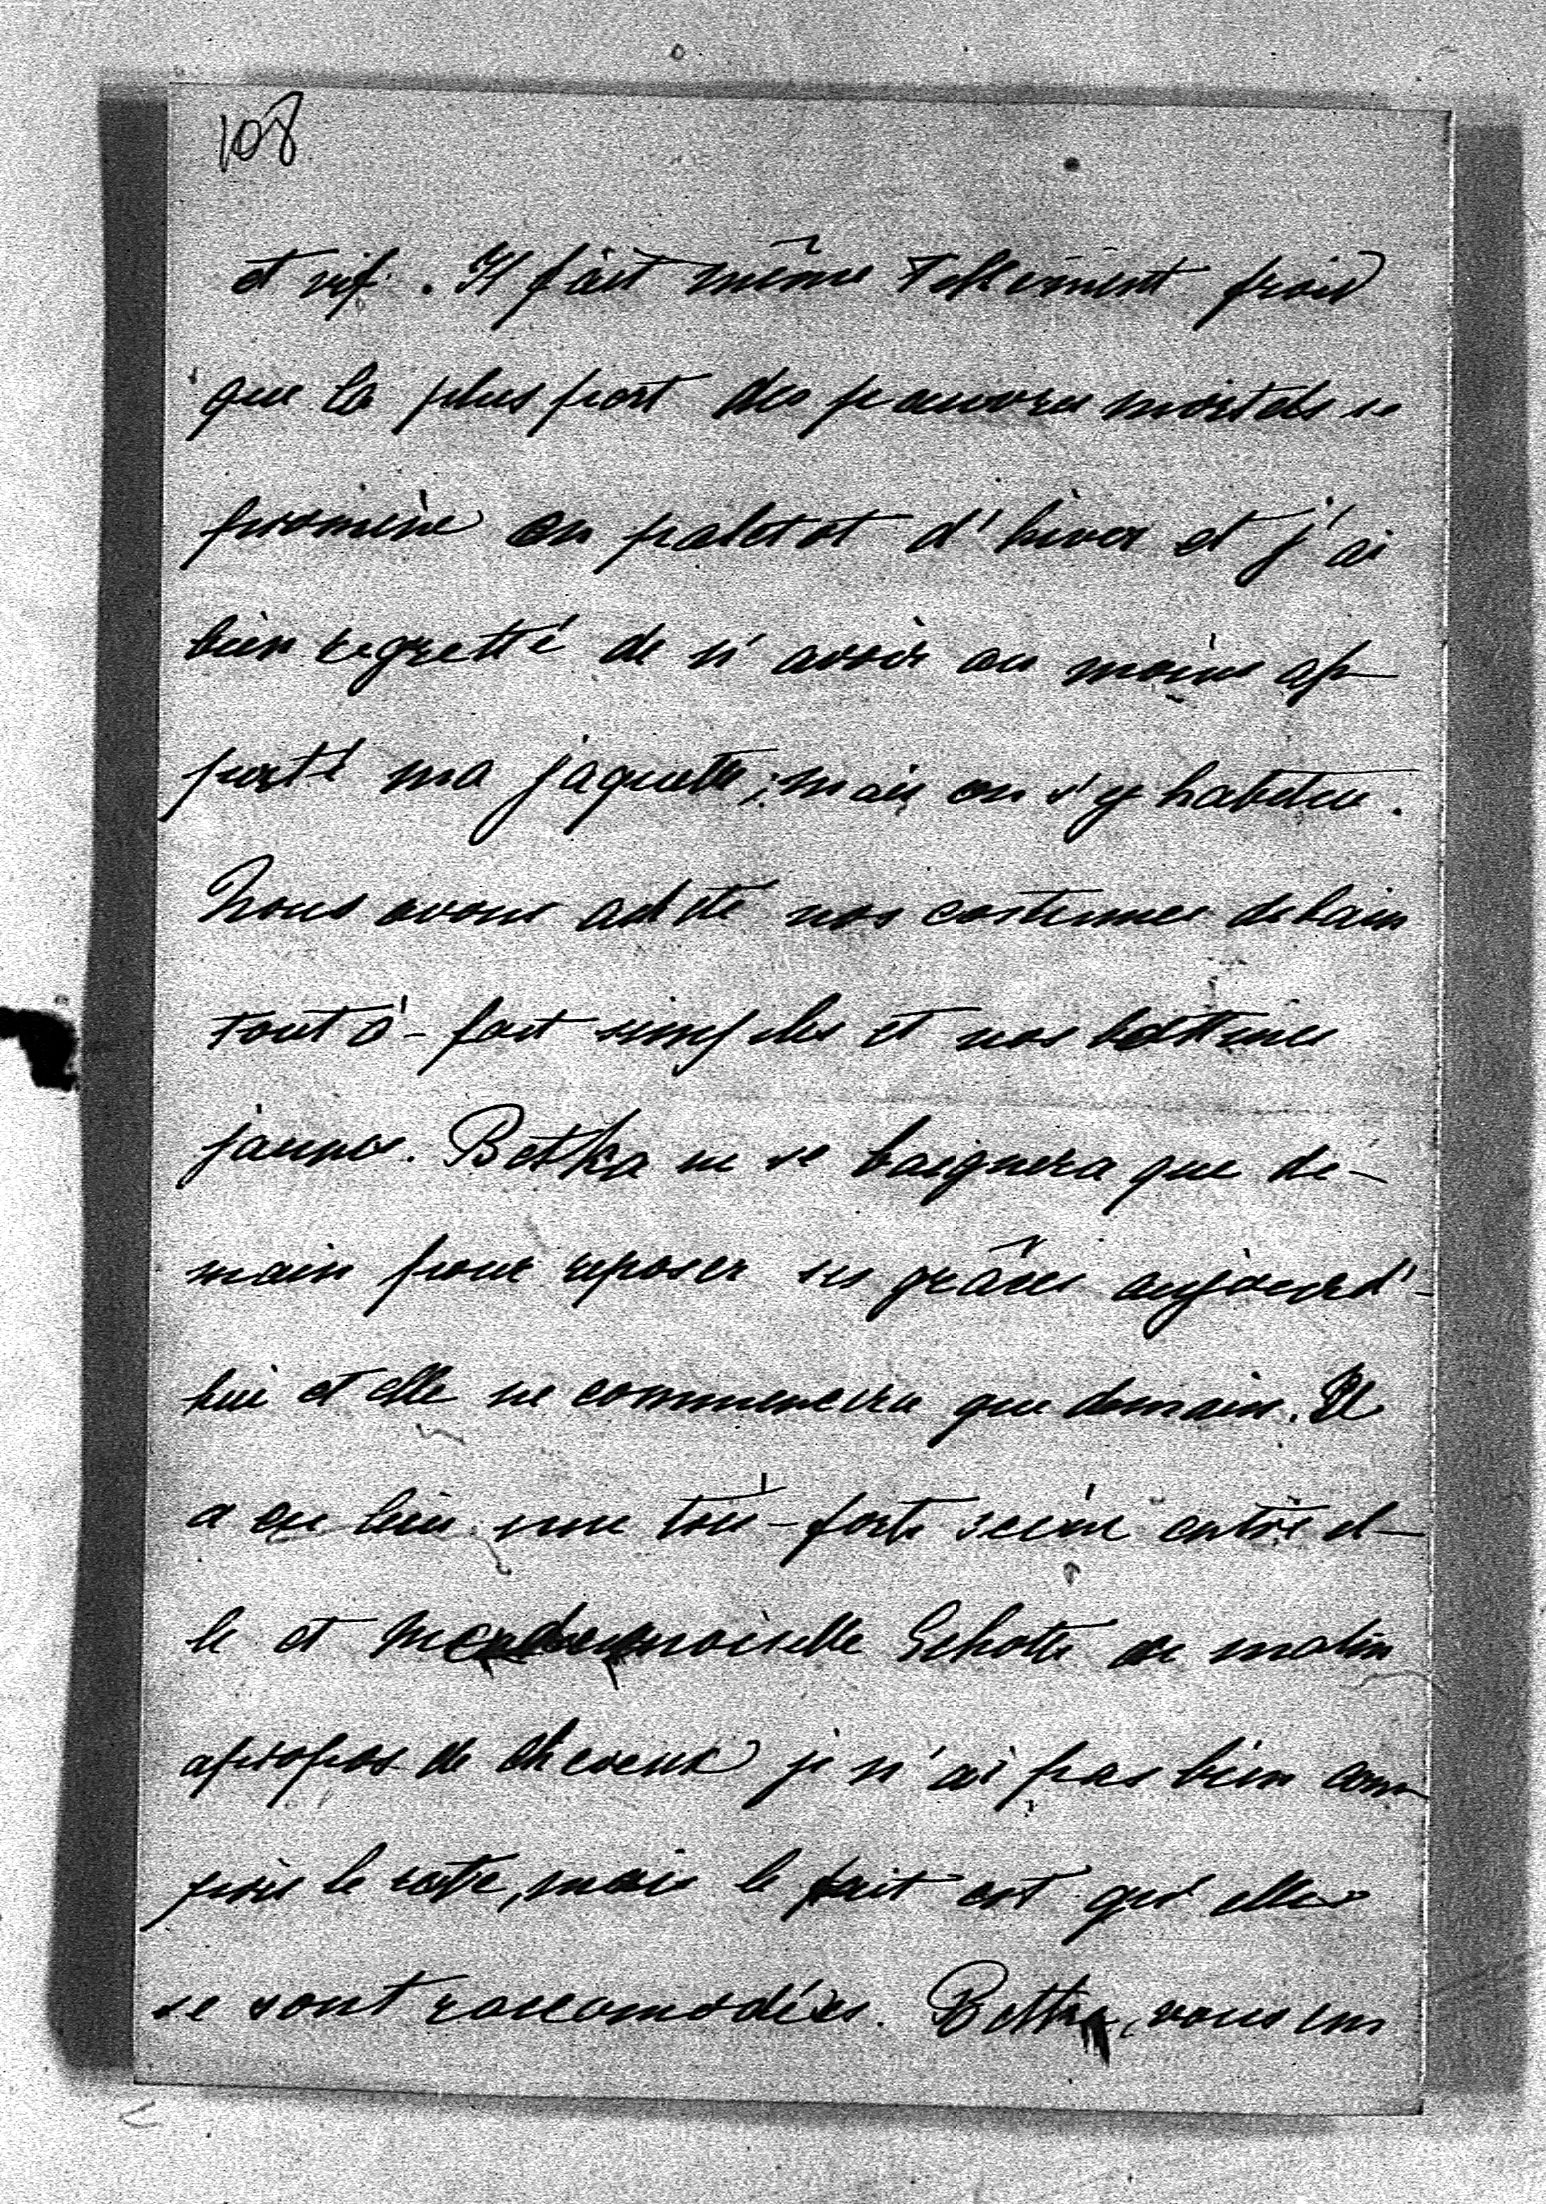 108
et vif. Il fait même tellement froid
que la plus part des pauvres mortels se
promène en paletot d'hiver et j'ai
bien regretté de n'avoir au moins ap-
porté ma jaquette; mais on s'y habitue.
Nous avons acheté nos costumes de bain
tout à-fait simples et nos bottines
jaunes. Bethka ne se baignera que de-
main pour reposer ses grâces aujourd'-
hui et elle ne commencera que demain. Il
a eu lieu une très-forte scène entre el-
le et Mademoiselle Schotte ce matin
apropos de cheveux je n'ai pas bien com-
pris le reste, mais le fait est qu'elles
se sont raccomodées. Bethka, sous un